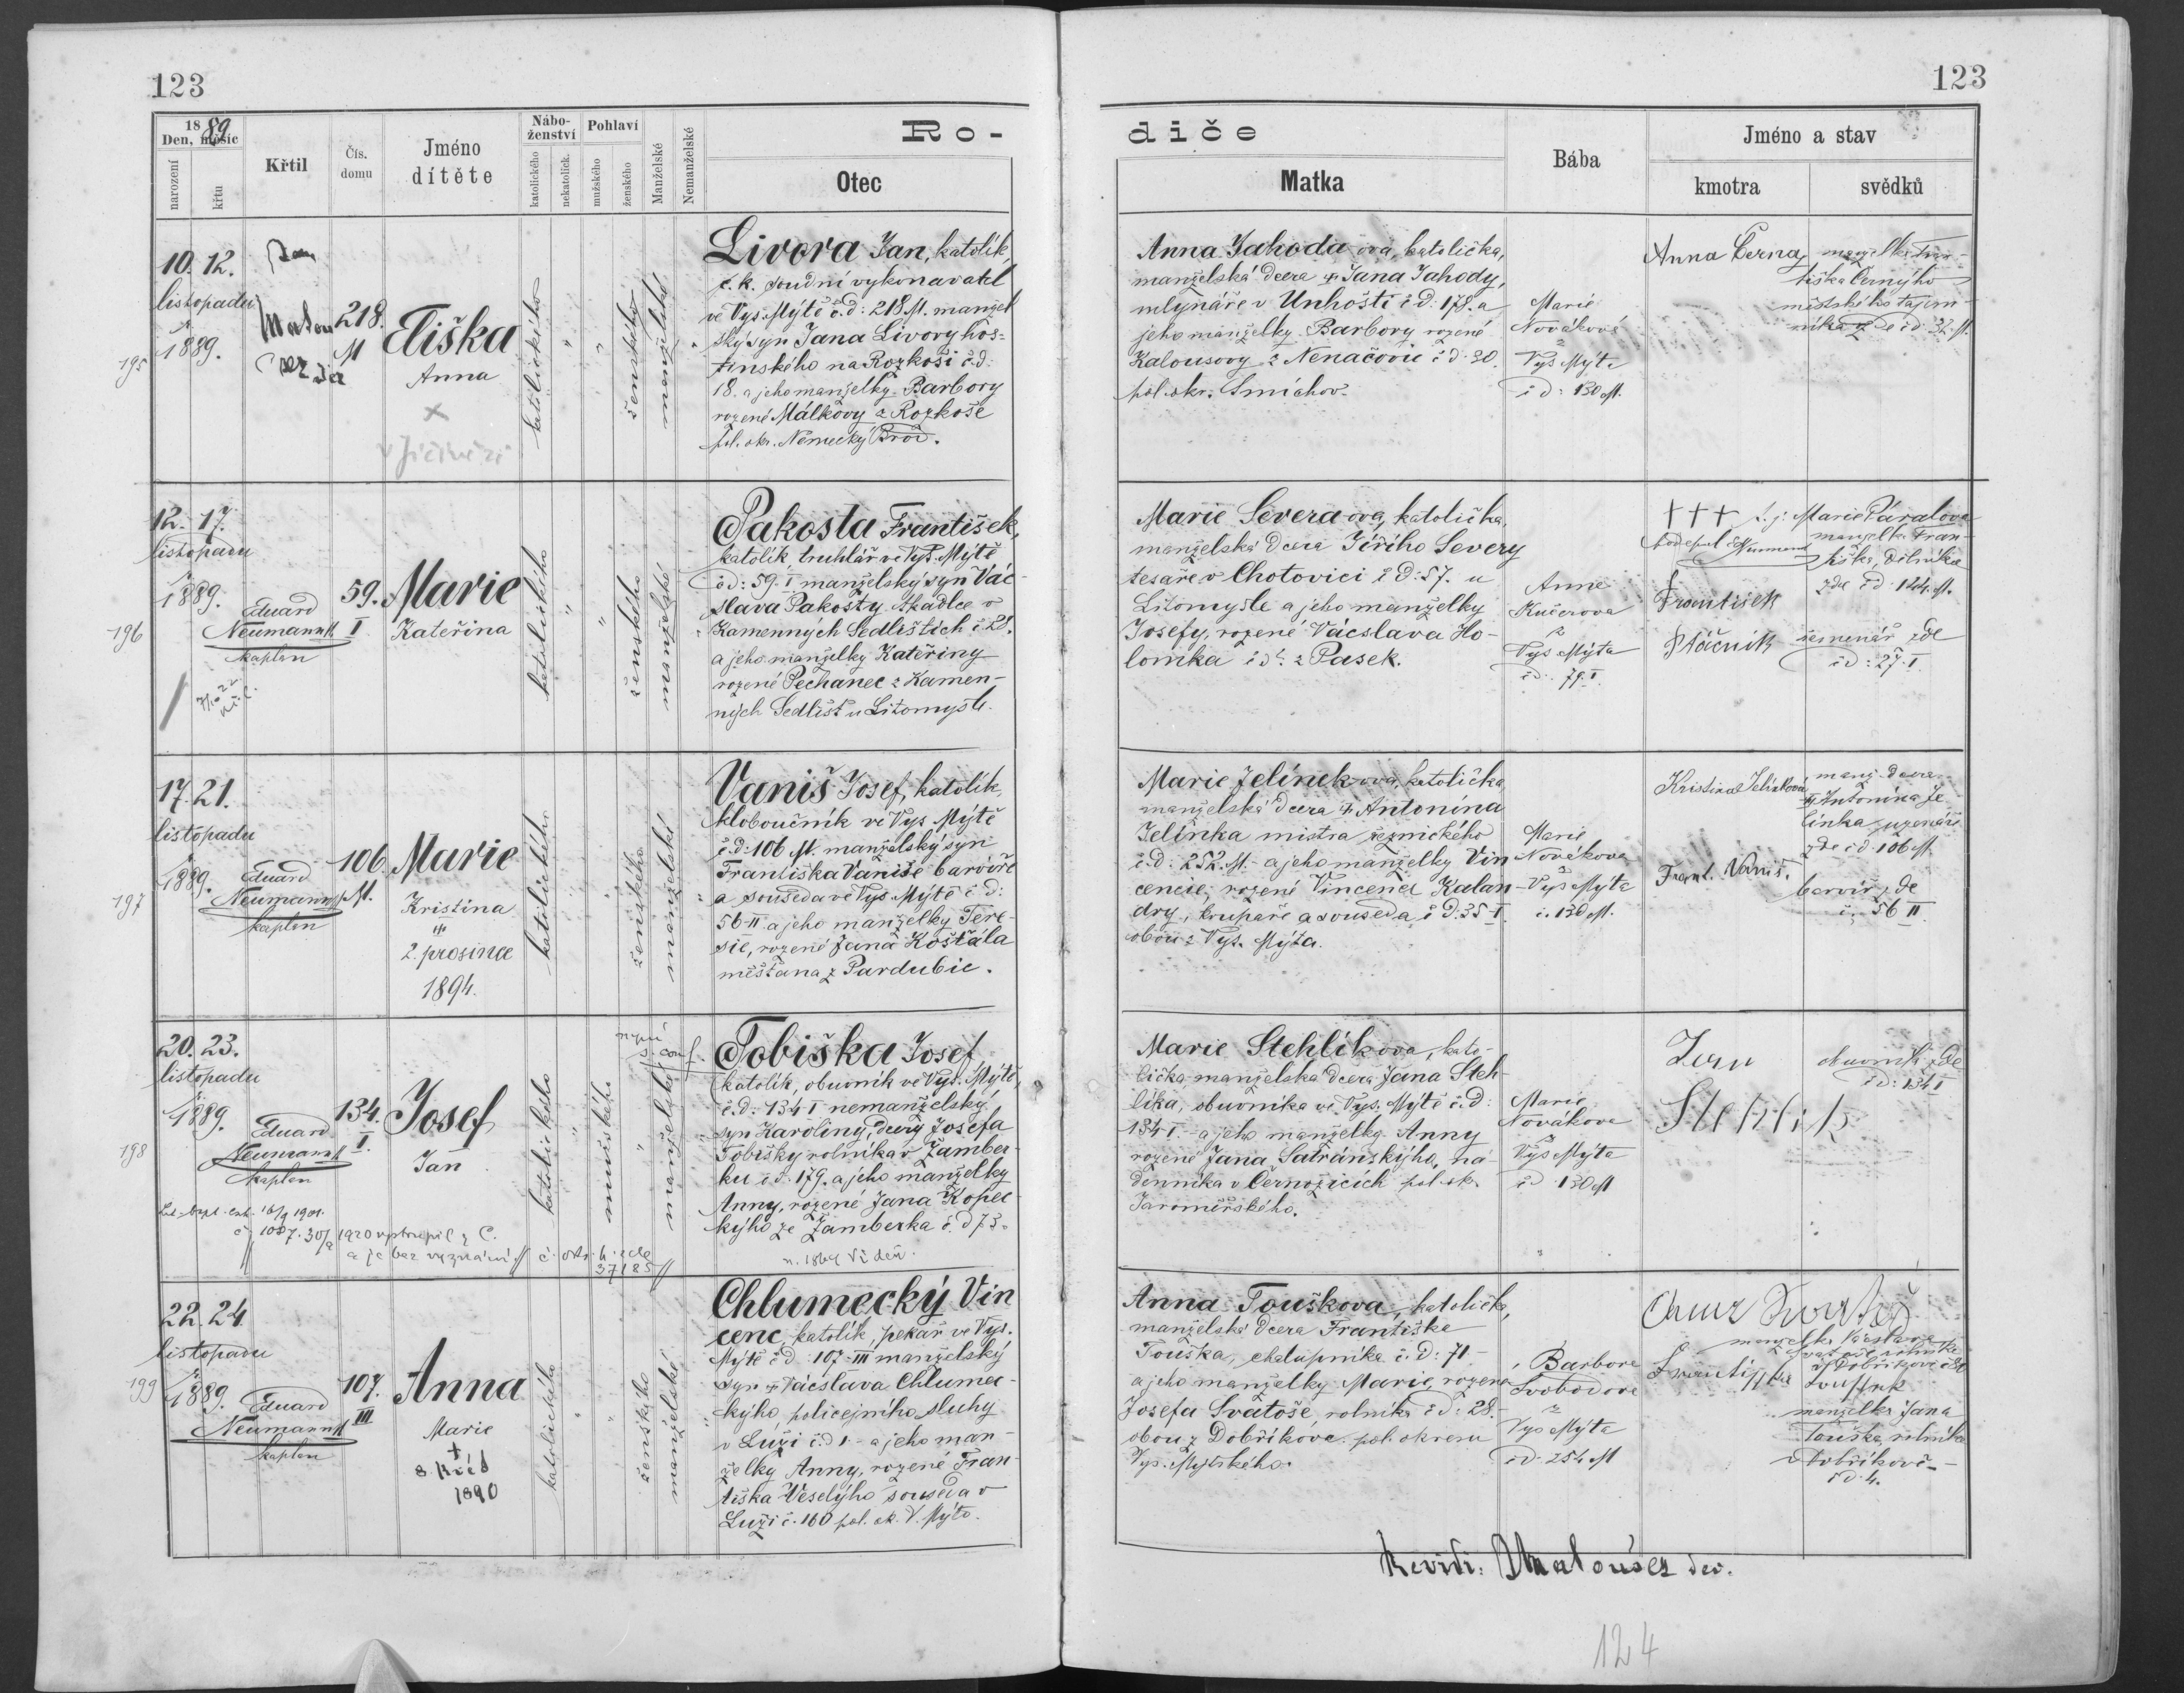 123
123
1889
Den, měsíc
narození
křtu
Křtil
Čís. domu
Jméno dítěte
Náboženství
katolického
nekatolick.
Pohlaví
mužského
ženského
Manželské
Nemanželské
Ro-
diče
Otec
Matka
Bába
Jméno a stav
kmotra
svědků
195
10. 12.
listopadu
1889.
Jan
218.
M
Eliška
Anna
katolického
ženského
manželské
Livora Jan, katolík,
c. k. soudní vykonavatel
ve Vys. Mýtě č.d: 218 M. manžel
ský syn Jana Livory hos-
tinského na Rozkoši č.d.
18. a jeho manželky Barbory
rozené Málkovy z Rozkoše
pol. okr. Německý Brod.
Anna Jahoda-ova, katolička,
manželská dcera † Jana Jahody,
mlynáře v Unhošti č.d: 178. a
jeho manželky Barbory rozené
Kalousovy z Nenačovic č.d. 30.
pol. okr. Smíchov.
Marie
Nováková
z
Vys Mýta
č.d: 130 M.
Anna Černý
manželka Fran-
tiška Černýho
městského tajem-
níka zde č.d. 32. M.
196
12. 17.
listopadu
1889.
Eduard
Neumann
kaplan
59.
I
Marie
Kateřina
katolického
ženského
manželské
Pakosta František,
katolík, truhlář ve Vys. Mýtě
č.d: 59. I manželský syn Vác-
slava Pakosty, tkadlce v
Kamenných Sedlištích č 28.
a jeho manželky Kateřiny
rozené Pechanec z Kamen-
ných Sedlišť u Litomyšle.
Marie Severa-ova, katolička,
manželská dcera Jiřího Severy
tesaře v Chotovici č.d: 57. u
Litomyšle a jeho manželky
Josefy, rozené Vácslava Ho-
lomka č.d: z Pasek.
Anna
Kučerova
z
Vys Mýta
č.d. 79. I.
††† t.j. Marie Páralova
podepsal Neumann
manželka Fran-
tiška, dělníka
zde č.d. 124. M.
František
Ptáčník
řemenář zde
č.d: 27. I.
197
17. 21.
listopadu
1889.
Eduard
Neumann
kaplan
106.
M.
Marie
Kristina
†††
2. prosince
1894.
katolického
ženského
manželské
Vaniš Josef, katolík,
kloboučník ve Vys Mýtě
č.d: 106 M. manželský syn
Františka Vaniše barvíře
a souseda ve Vys. Mýtě č.d:
56-II. a jeho manželky Tere-
sie, rozené Jana Košťála
měšťana z Pardubic.
Marie Jelínek-ova, katolička
manželská dcera † Antonína
Jelínka mistra řeznického
č.d: 252. M. a jeho manželky Vin
cencie, rozené Vincence Kalan-
dry, krupaře a souseda č.d: 35-I.
obou z Vys. Mýta.
Marie
Novákova
z
Vys Mýta
č. 130 M.
Kristina Jelínková
manž. dcera
† Antonína Je-
línka, uzenáře
zde č.d 106 M.
Frant. Vaniš.
barvíř zde
č. 56 II.
198
20. 23.
listopadu
1889.
Eduard
Neumann
kaplan
134.
I.
Josef
Jan
katolického
mužského
manželské
Tobiška Josef,
katolík, obuvník ve Vys. Mýtě
č.d: 134 I nemanželský
syn Karoliny, dcery Josefa
Tobišky rolníka v Žamber-
ku č.d. 179. a jeho manželky
Anny, rozené Jana Kopec-
kýho ze Žamberka č.d 73.
n. 1864 Vídeň.
1920 vystoupil z C.
a je bez vyznání
37185
Marie Stehlíkova, kato-
lička, manželská dcera Jana Steh-
líka, obuvníka ve Vys. Mýtě č.d:
134 I. a jeho manželky Anny
rozené Jana Satránskýho, ná-
denníka v Černožicích pol. ok.
Jaroměřského.
Marie
Novákova
z
Vys Mýta
č.d. 130 M
Jan
Stehlík
obuvník zde
č.d: 134 I
199
22. 24.
listopadu
1889.
Eduard
Neumann
kaplan
107.
III
Anna
Marie
†
8. květ
1890
katolického
ženského
manželské
Chlumecký Vin
cenc, katolík, pekař ve Vys.
Mýtě č.d: 107-III manželský
syn † Vácslava Chlumec-
kýho, policejního sluhy
v Luži č.d 1. a jeho man-
želky Anny, rozené Fran-
tiška Veselýho souseda v
Luži č. 160 pol. ok. V. Mýto.
Anna Touškova, katolička,
manželská dcera Františka
Touška, chalupníka č.d: 71-
a jeho manželky Marie, rozené
Josefa Svatoše, rolníka č.d: 28.
obou z Dobříkova pol. okresu
Vys. Mýtského.
Barbora
Svobodova
z
Vys Mýta
č.d. 254 M
Anna Svatoš
manželka Vácslava
Svatoše rolníka
v Dobříkově č. 20
Františka
Toušek
manželka Jana
Touška, rolníka
v Dobříkově-
č.d. 4.
Revidi: Matoušek děk.
124